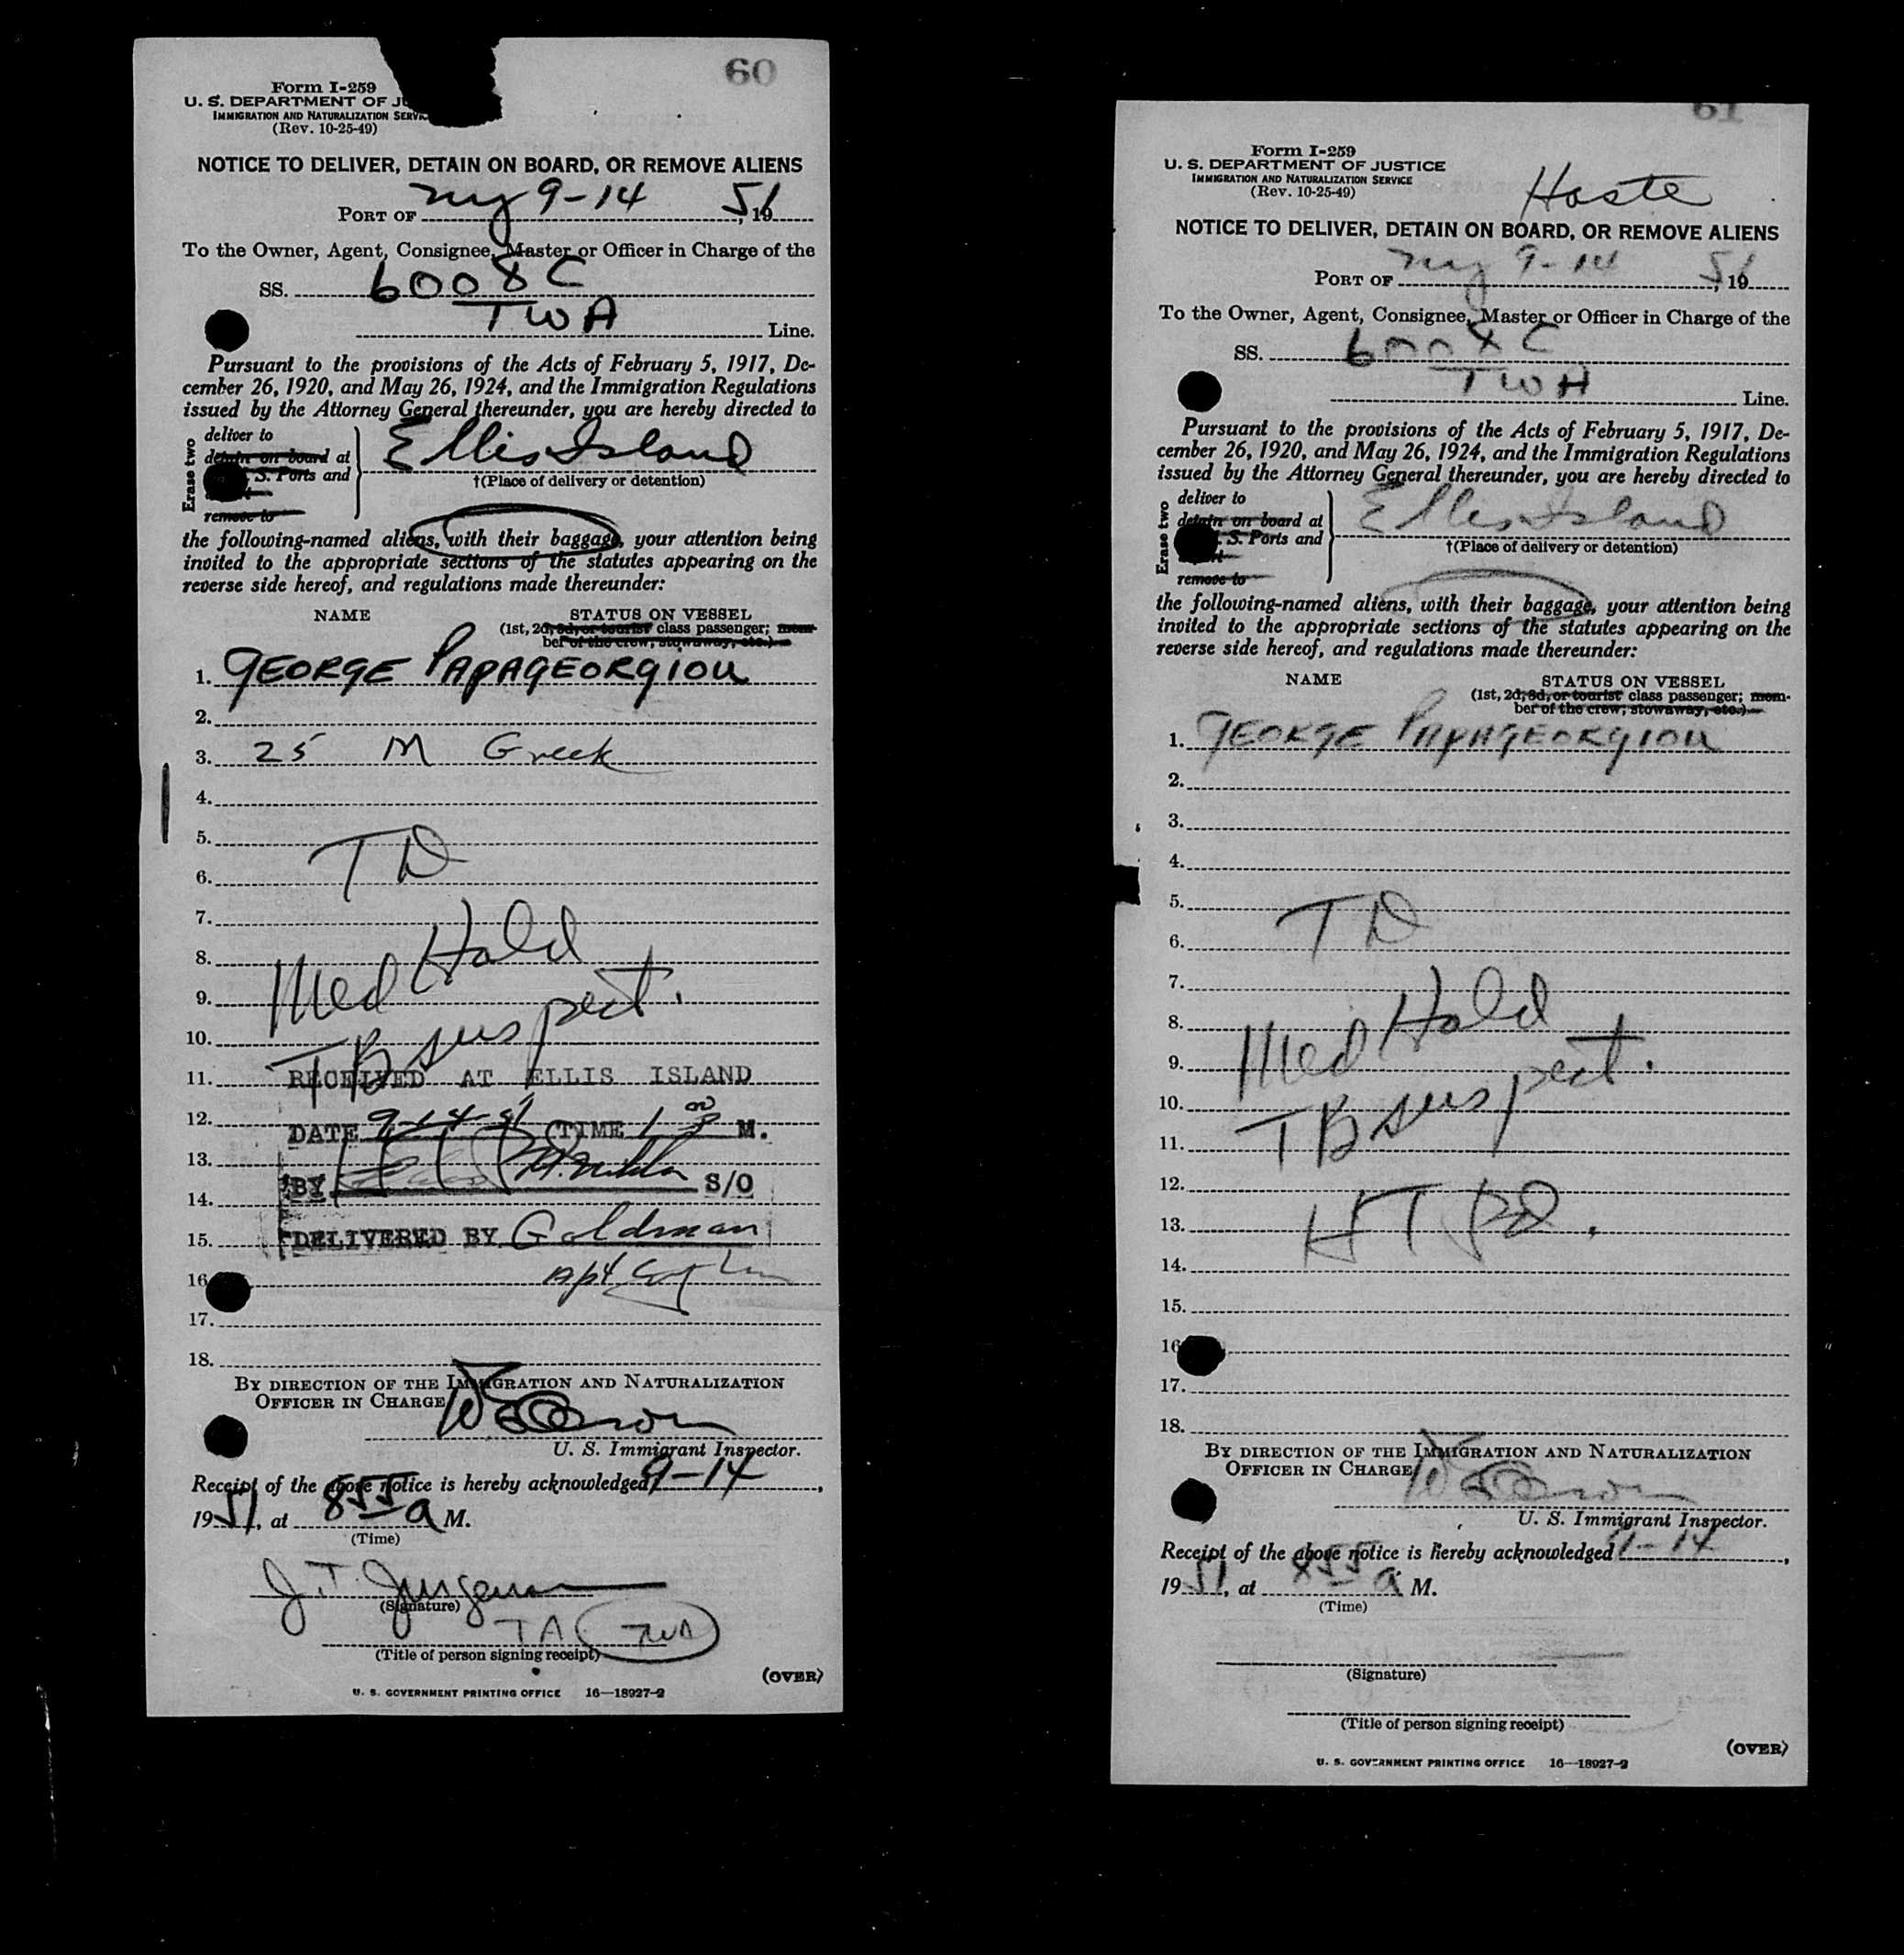 60
Form I-259
U. S. DEPARTMENT OF JU
IMMIGRATION AND NATURALIZATION SERVI
(Rev. 10-25-49)
NOTICE TO DELIVER, DETAIN ON BOARD, OR REMOVE ALIENS
PORT OF ny 9-14 51, 19
To the Owner, Agent, Consignee, Master or Officer in Charge of the
SS. 6008C
TWA Line.
Pursuant to the provisions of the Acts of February 5, 1917, De-
cember 26, 1920, and May 26, 1924, and the Immigration Regulations
issued by the Attorney General thereunder, you are hereby directed to
Erase two
deliver to
detain on board at
S. Ports and
remove to
Ellis Island
†(Place of delivery or detention)
the following-named aliens, with their baggage, your attention being
invited to the appropriate sections of the statutes appearing on the
reverse side hereof, and regulations made thereunder:
NAME STATUS ON VESSEL
(1st, 2d, 3d, or tourist class passenger; mem-
ber of the crew, stowaway, etc.)
1. GEORGE PAPAGEORGIOU
2.
3. 25 M Greek
4.
5.
6. TD
7.
8. Hold
9. Med
10. TB suspect.
11. RECEIVED AT ELLIS ISLAND
12. DATE 9-14-51 TIME 1 M.
13.
BY S/O
14.
15. DELIVERED BY Goldman
16
17.
18.
BY DIRECTION OF THE IMMIGRATION AND NATURALIZATION
OFFICER IN CHARGE
U. S. Immigrant Inspector.
Receipt of the above notice is hereby acknowledged 9-14,
1951, at 855 a M.
(Time)
J. T. Jurgens
(Signature)
TA TWA
(Title of person signing receipt)
(OVER)
U. S. GOVERNMENT PRINTING OFFICE 16—18927-2
61
Form I-259
U. S. DEPARTMENT OF JUSTICE
IMMIGRATION AND NATURALIZATION SERVICE
(Rev. 10-25-49)
Haste
NOTICE TO DELIVER, DETAIN ON BOARD, OR REMOVE ALIENS
PORT OF ny 9-14 51, 19
To the Owner, Agent, Consignee, Master or Officer in Charge of the
SS. 6008C
TWA Line.
Pursuant to the provisions of the Acts of February 5, 1917, De-
cember 26, 1920, and May 26, 1924, and the Immigration Regulations
issued by the Attorney General thereunder, you are hereby directed to
Erase two
deliver to
detain on board at
S. Ports and
remove to
Ellis Island
†(Place of delivery or detention)
the following-named aliens, with their baggage, your attention being
invited to the appropriate sections of the statutes appearing on the
reverse side hereof, and regulations made thereunder:
NAME STATUS ON VESSEL
(1st, 2d, 3d, or tourist class passenger; mem-
ber of the crew, stowaway, etc.)
1. GEORGE PAPAGEORGIOU
2.
3.
4.
5.
6. TD
7.
8. Hold
9. Med
10. suspect.
11. TB
12.
13.
14.
15.
16
17.
18.
BY DIRECTION OF THE IMMIGRATION AND NATURALIZATION
OFFICER IN CHARGE
U. S. Immigrant Inspector.
Receipt of the above notice is hereby acknowledged 9-14,
1951, at 855 a M.
(Time)
(Signature)
(Title of person signing receipt)
(OVER)
U. S. GOVERNMENT PRINTING OFFICE 16—18927-2